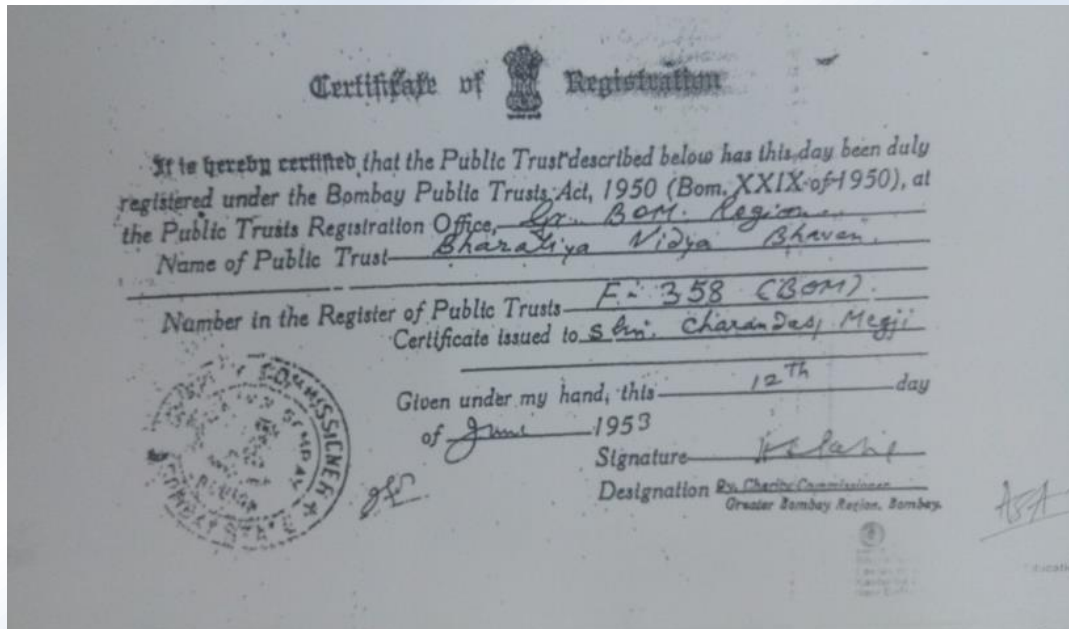 Certificate of Registration
It is hereby certified, that the Public Trust described below has this day been duly
registered under the Bombay Public Trusts Act, 1950 (Bom. XXIX of 1950), at
the Public Trusts Registration Office, Gr. BOM. Region
Name of Public Trust Bharatiya Vidya Bhavan.
Number in the Register of Public Trusts F-358 (BOM).
Certificate issued to Shri. Charandas Megji
Given under my hand, this 12th day
of June 1953
Signature
Designation Dy. Charity Commissioner
Greater Bombay Region. Bombay.
COMMISSIONER